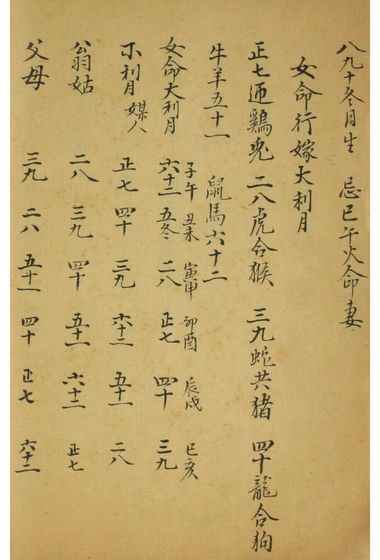 八九十冬月生 忌巳午火命妻
女命行嫁大利月
正七迎鷄兎 二八虎合猴 三九蛇共猪 四十龍合狗
牛羊五十一 鼠馬六十二
子午 丑未 寅申 卯酉 辰戌 巳亥
女命大利月 六十二 五冬 二八 正七 四十 三九
不利月 媒人 正七 四十 三九 六十二 五十一 二八
翁姑 二八 三九 四十 五十一 六十二 正七
父母 三九 二八 五十一 四十 正七 六十二